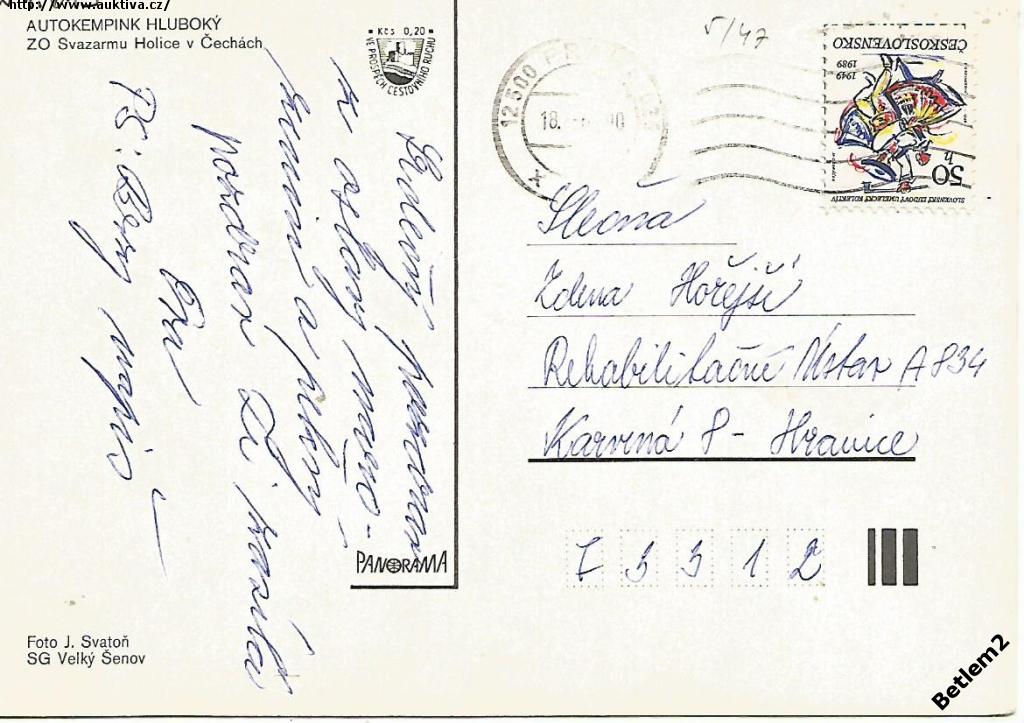 http://www.auktiva.cz/
AUTOKEMPINK HLUBOKÝ
ZO Svazarmu Holice v Čechách
Kčs 0,20
VE PROSPĚCH CESTOVNÍHO RUCHU
5/47
ČESKOSLOVENSKO
1949 1989
50 h
SLOVENSKÝ ĽUDOVÝ UMELECKÝ KOLEKTÍV
12500
18.
90
Srdečný pozdrav
z oslavy
a
pozdrav Ti
PS: Brzy napiš
Slečna
Zdena Hořejší
Rehabilitační Ústav A 834
Karviná 8 - Hranice
73312
PANORAMA
Foto J. Svatoň
SG Velký Šenov
Betlem2